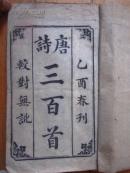 乙酉春刊
唐詩
三百首
較對無訛